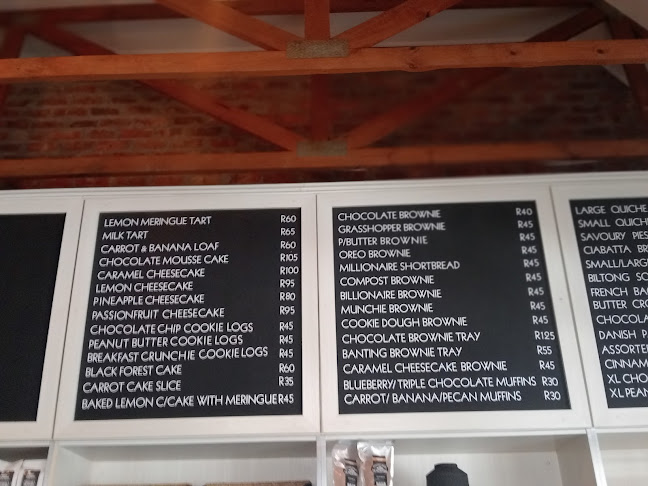 LEMON MERINGUE TART R60
MILK TART R65
CARROT & BANANA LOAF R60
CHOCOLATE MOUSSE CAKE R105
CARAMEL CHEESECAKE R100
LEMON CHEESECAKE R95
PINEAPPLE CHEESECAKE R80
PASSIONFRUIT CHEESECAKE R95
CHOCOLATE CHIP COOKIE LOGS R45
PEANUT BUTTER COOKIE LOGS R45
BREAKFAST CRUNCHIE COOKIE LOGS R45
BLACK FOREST CAKE R60
CARROT CAKE SLICE R35
BAKED LEMON C/CAKE WITH MERINGUE R45
CHOCOLATE BROWNIE R40
GRASSHOPPER BROWNIE R45
P/BUTTER BROWNIE R45
OREO BROWNIE R45
MILLIONAIRE SHORTBREAD R45
COMPOST BROWNIE R45
BILLIONAIRE BROWNIE R45
MUNCHIE BROWNIE R45
COOKIE DOUGH BROWNIE R45
CHOCOLATE BROWNIE TRAY R125
BANTING BROWNIE TRAY R55
CARAMEL CHEESECAKE BROWNIE R45
BLUEBERRY/TRIPLE CHOCOLATE MUFFINS R30
CARROT/BANANA/PECAN MUFFINS R30
LARGE QUICHE
SMALL QUICHE
SAVOURY PIES
CIABATTA BR
SMALL/LARG
BILTONG SC
FRENCH BA
BUTTER CRO
CHOCOLA
DANISH P
ASSORTE
CINNAM
XL CHO
XL PEAN